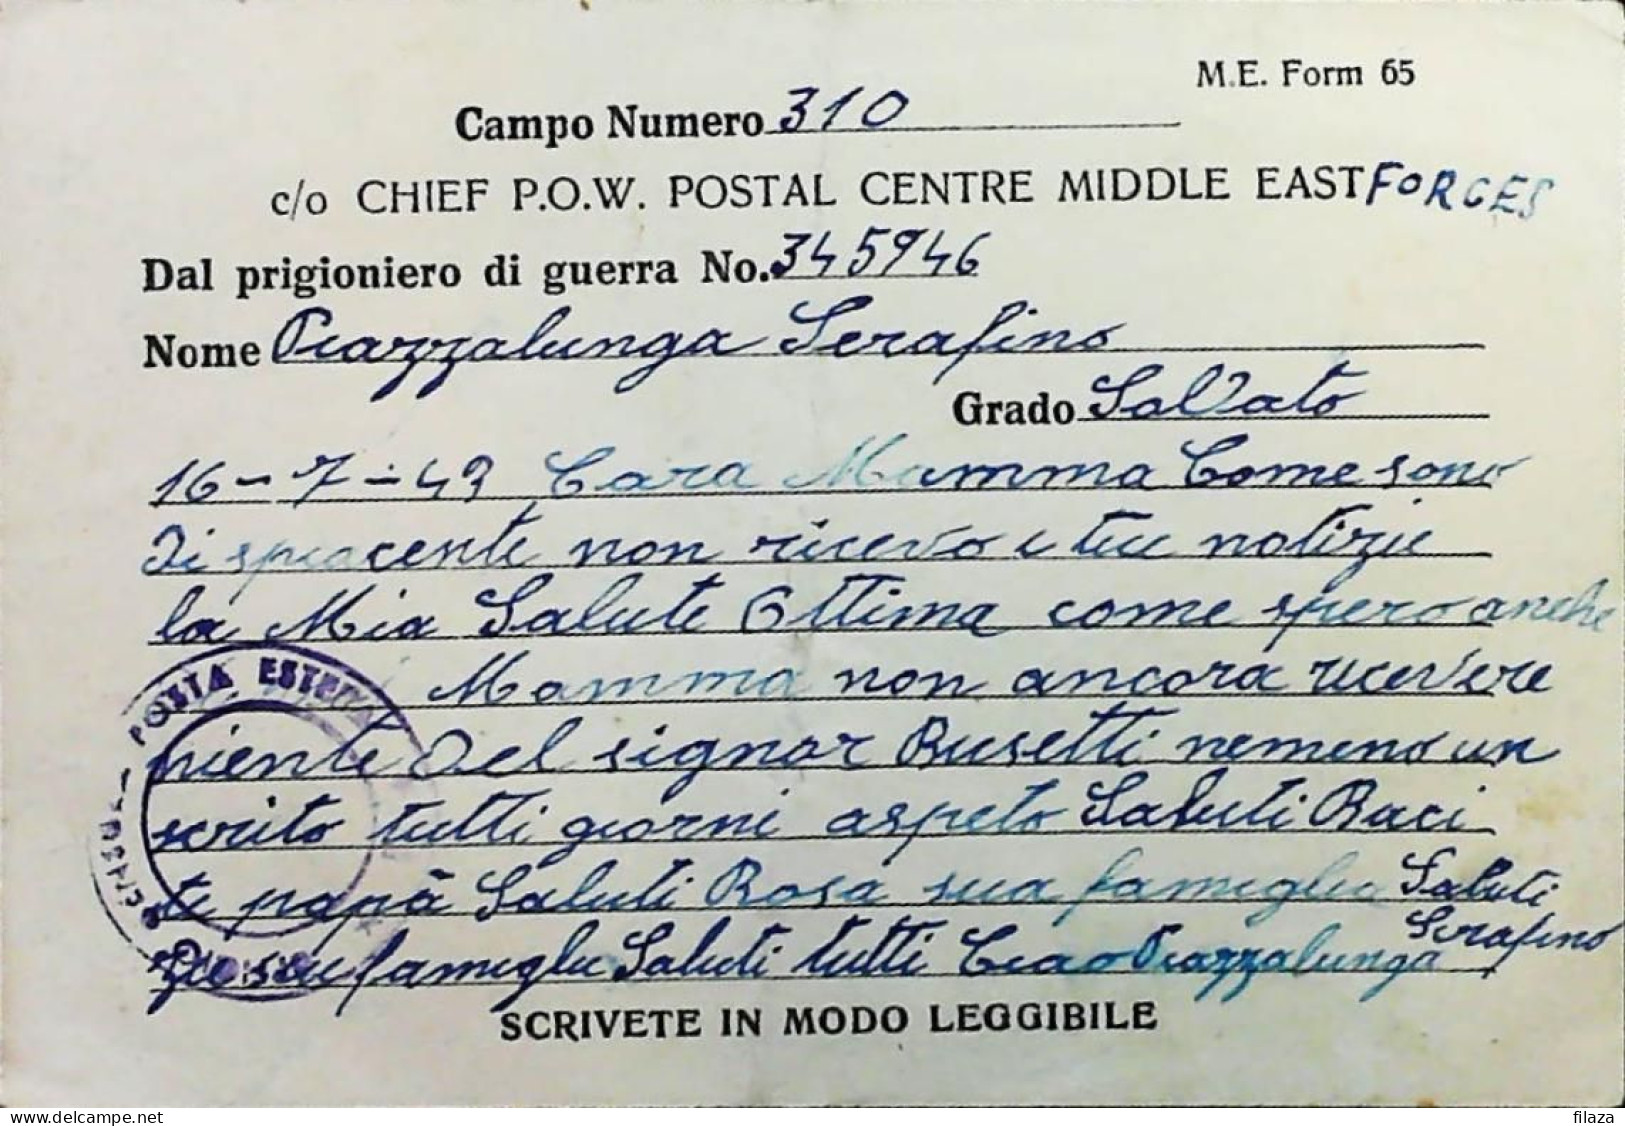 M.E. Form 65
Campo Numero 310
c/o CHIEF P.O.W. POSTAL CENTRE MIDDLE EAST FORCES
Dal prigioniero di guerra No. 345946
Nome Piazzalunga Serafino
Grado Soldato
16-7-43 Cara Mamma Come sono
Di spiacente non ricevo i tue notizie
la Mia Salute Ottima come spero anche
Mamma non ancora ricevere
niente Del signor Busetti nemeno un
scrito tutti giorni aspeto Saluti Baci
te papà Saluti Rosa sua famiglia Saluti
zie sue famiglie Saluti tutti Ciao Piazzalunga Serafino
POSTA ESTERA
SCRIVETE IN MODO LEGGIBILE
delcampe.net
filaza